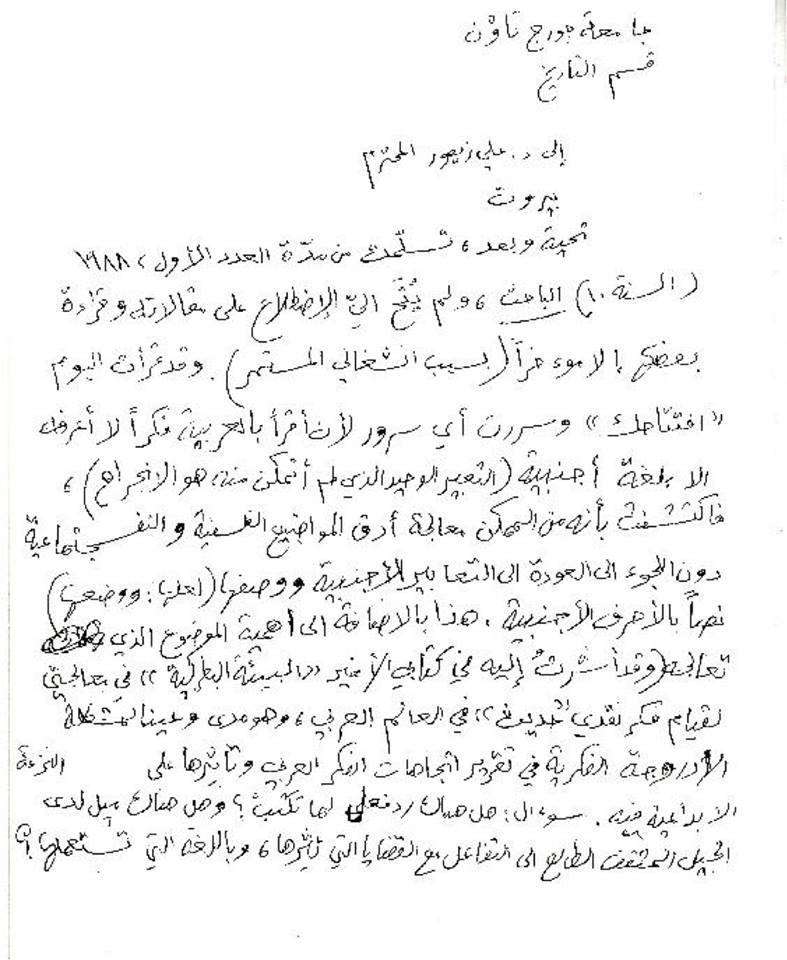 جامعة جورج تاون
قسم التاريخ
إلى د. علي زيعور المحترم
بيروت
تحية وبعد، تسلّمت من مدّة العدد الأول، ١٩٨٨
(السنة ١٠) الباحث، ولم يُتَح إليّ الإضطلاع على مقالاته وقراءة
بعضها إلا موءخراً (بسبب انشغالي المستمر). وقد قرأت اليوم
"افتتاحك" وسررت أي سرور لأن أقرأ بالعربية فكراً لا أعرفه
الا بلغة أجنبية (التعبير الوحيد الذي لم أتمكن منه، هو الانجراح)،
فاكتشفت بأنه من الممكن معالجة أدق المواضيع الفلسفية والنفسجتماعية
دون اللجوء الى العودة الى التعابير الأجنبية ووصفها (لعلها: ووضعها)
نصاً بالأحرف الأجنبية. هذا بالاضافة إلى أهمية الموضوع الذي
تعالجه (وقد أشرتُ إليه في كتابي الأخير "البيئة البطركية" في معالجتي
لقيام فكر نقدي "حديث" في العالم العربي، وهو مدى وعينا لمشكلة
الازدوجة الفكرية في تقرير اتجاهات الفكر العربي وتأثيرها على النزعة
الابداعية فيه. سوءال: هل هناك ردفعل لما تكتب؟ وهل هناك ميل لدى
الجيل المثقف الطالع الى التفاعل مع القضايا التي تثيرها، وباللغة التي تستعملها؟